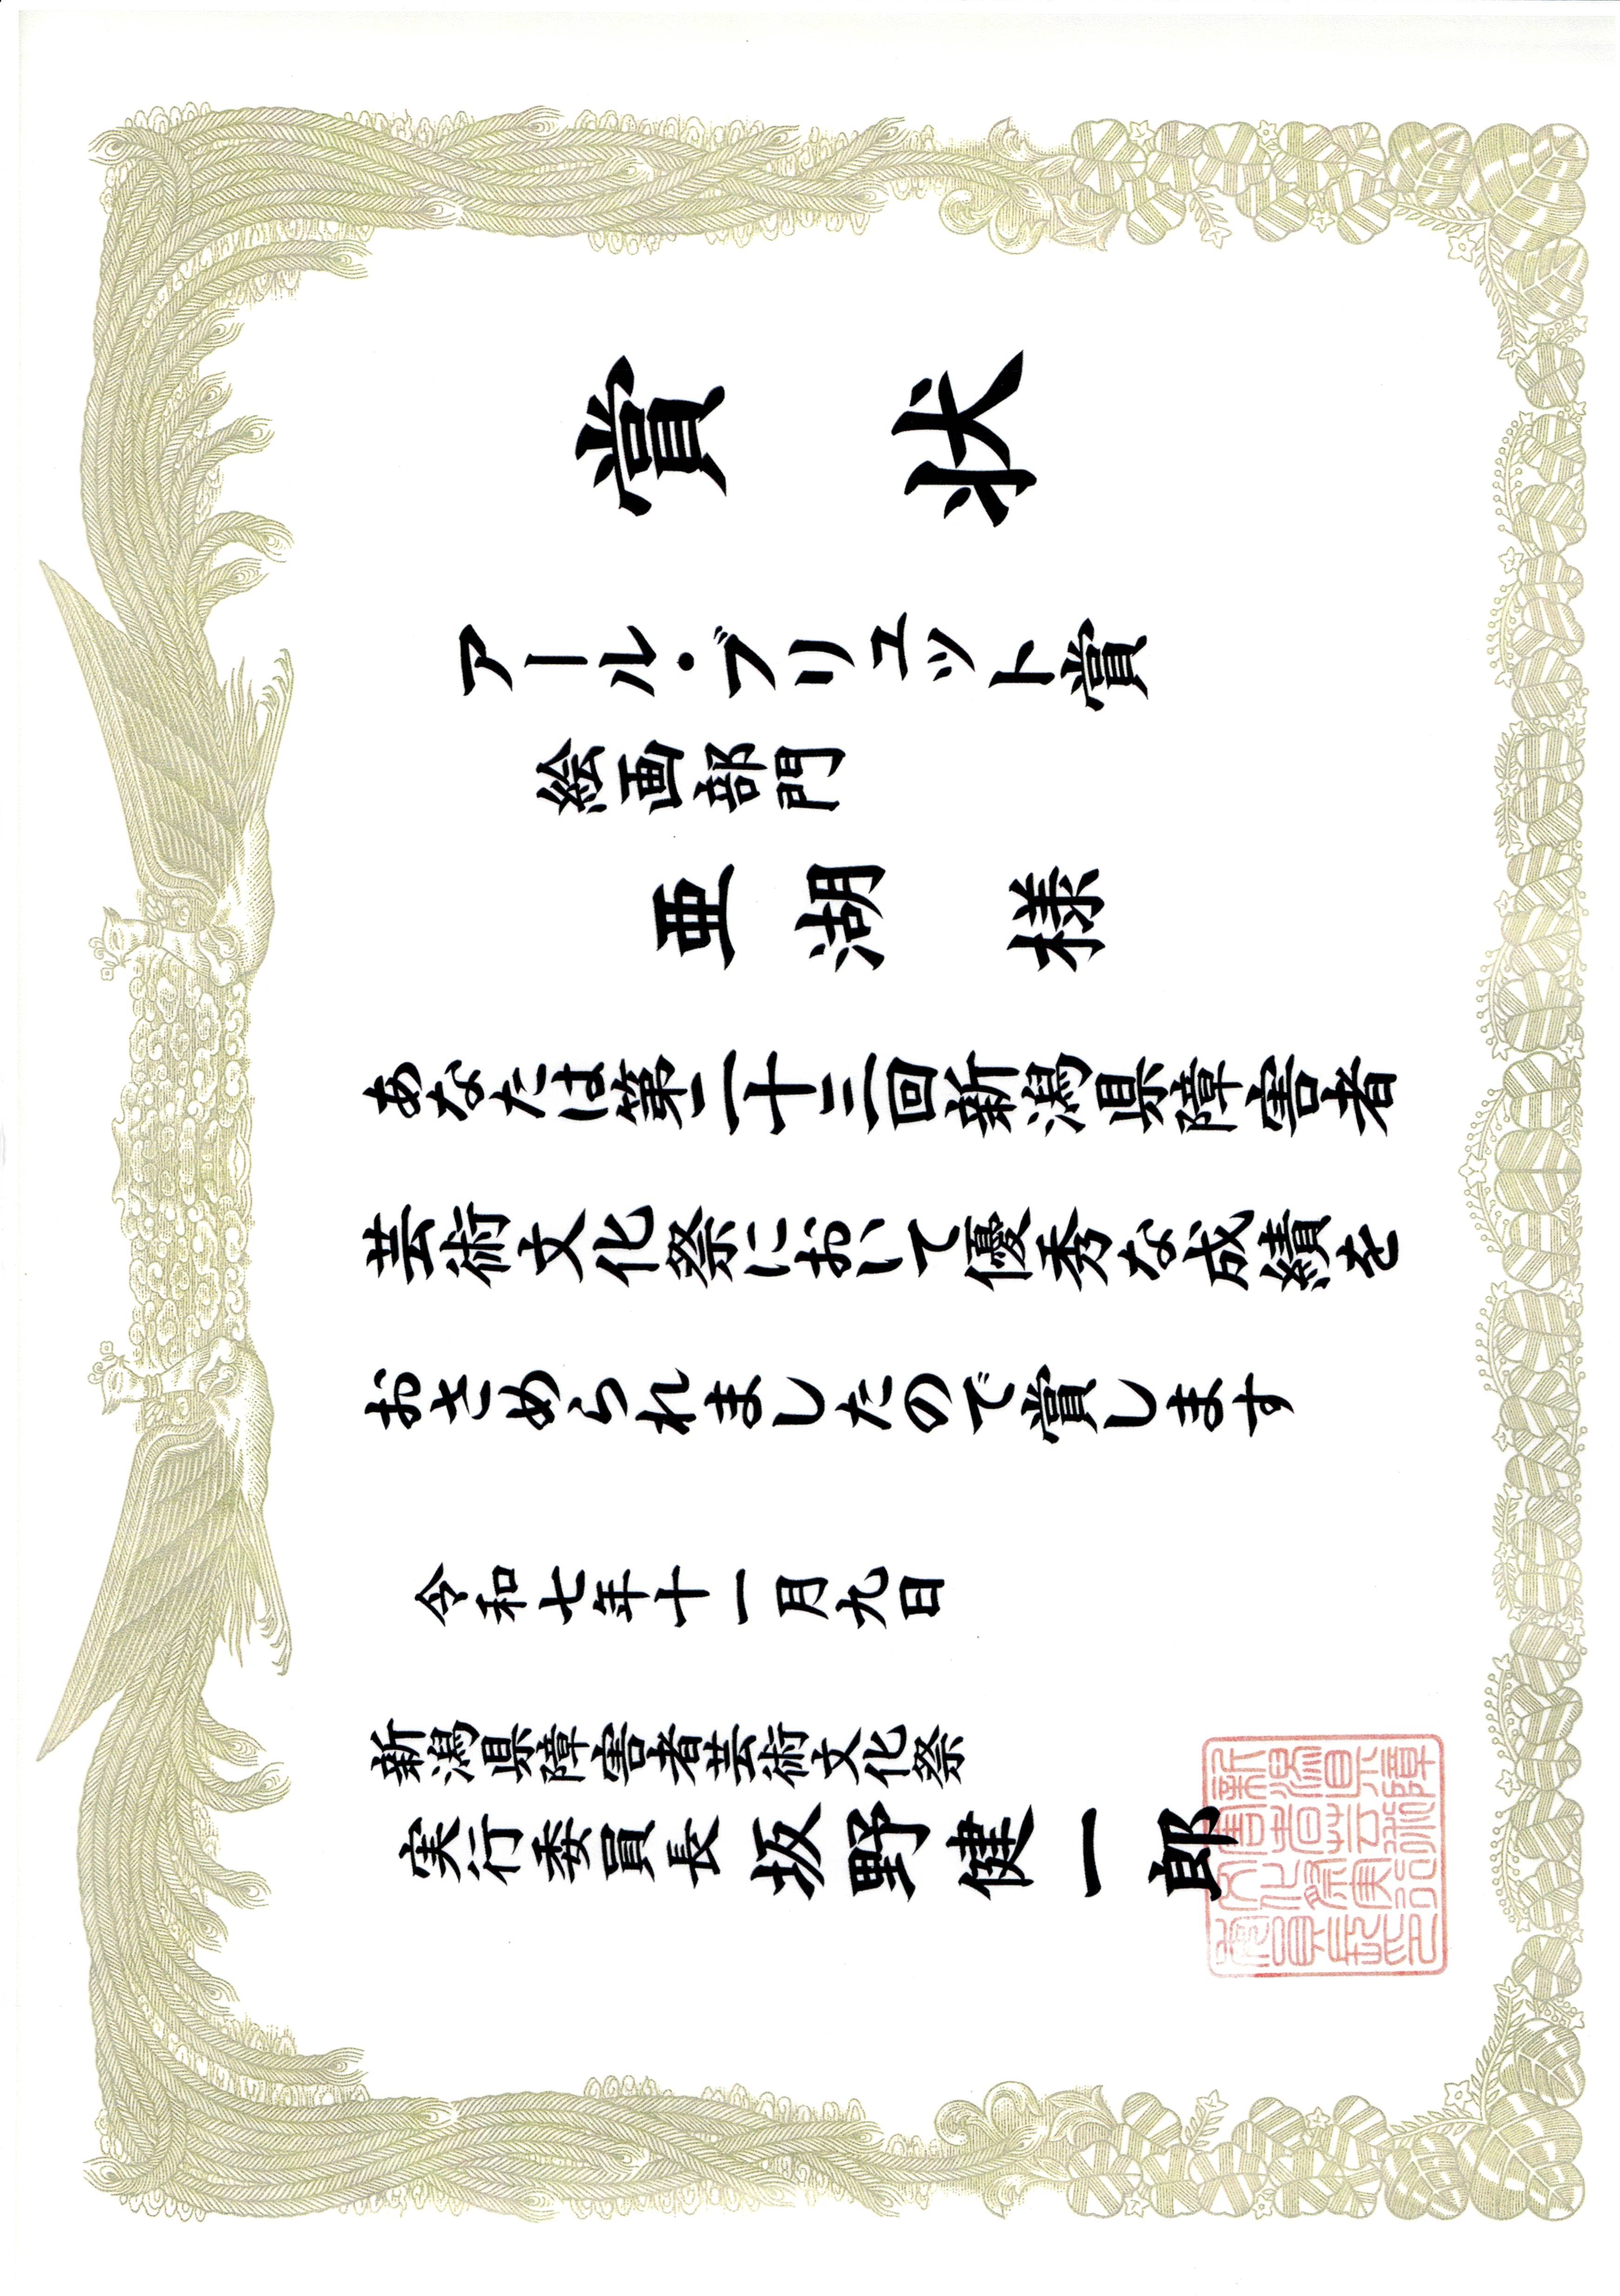 賞状
アール・ブリュット賞
絵画部門
亜湖 様
あなたは第二十三回新潟県障害者
芸術文化祭において優秀な成績を
おさめられましたので賞します
令和七年十一月九日
新潟県障害者芸術文化祭
実行委員長 坂野健一郎